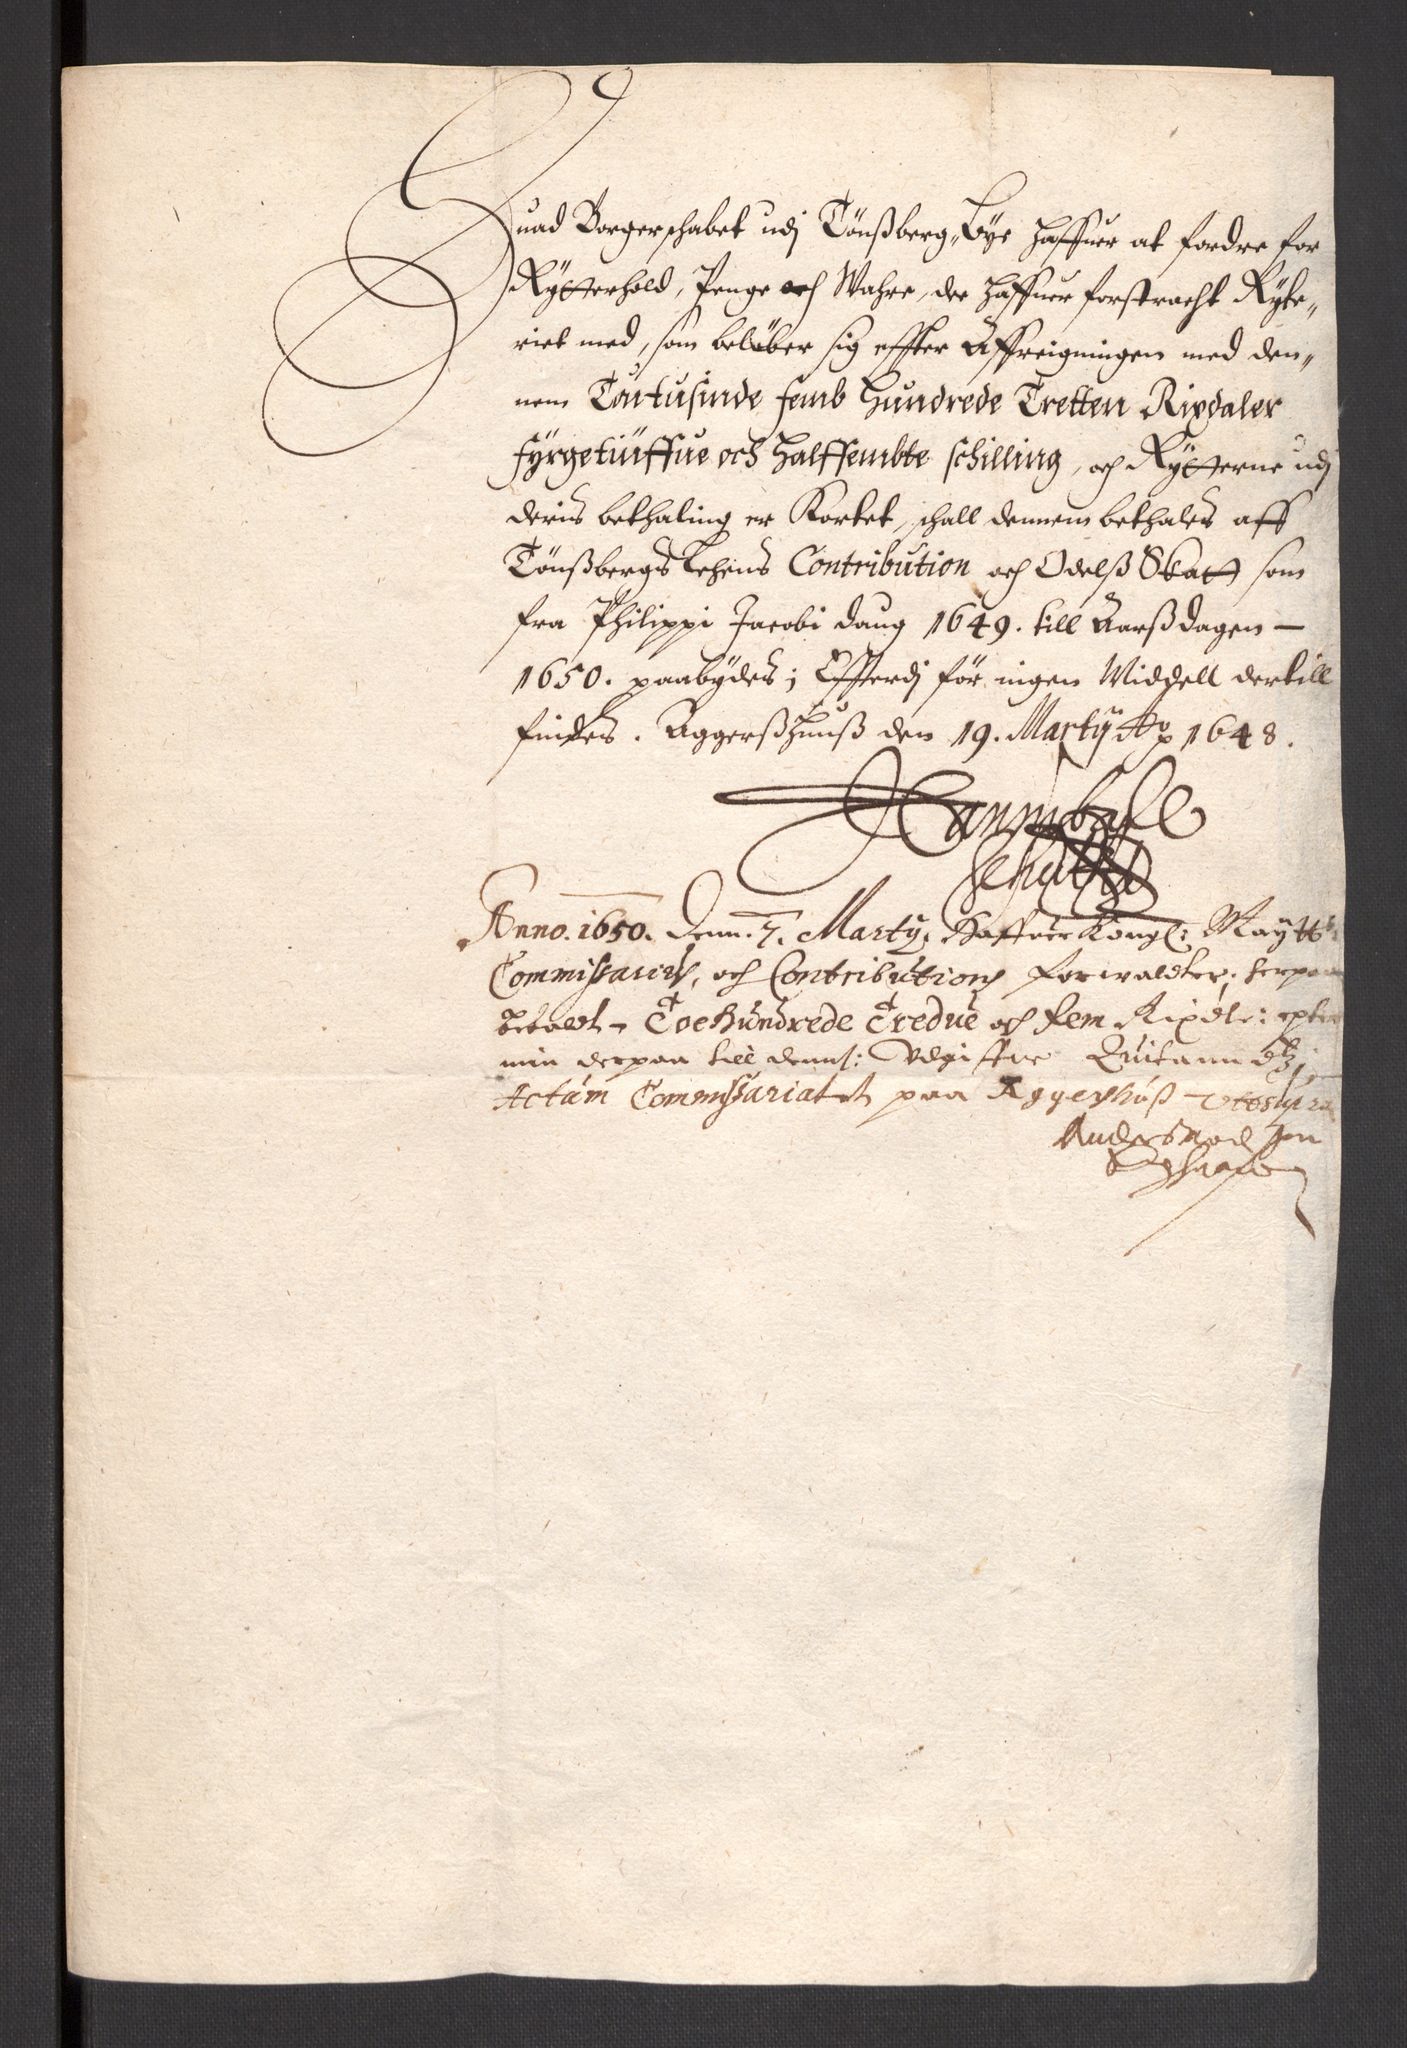 Huad Borgerschabet udj Tönßberg Bye haffuer at fordre for
Rÿtterhold, Penge och Wahre, de haffuer forstracht Rÿtte,,
riet med, som belöber sig effter Affreigningen med den,,
nem Toitusinde femb Hundrede Tretten Rixdaler
fÿrgetiuffue och halffembte schilling, och Rÿtterne udj
deris bethaling er Kortet, schall dennem bethales aff
Tönßbergs Lehens Contribution och Odelß Skatt som
fra Philippi Jacobi daug 1649. till Aarßdagen —
1650. paabÿdes; Efferdj för ingen Middell dertill
findes. Aggerßhuuß den 19. Martÿ Ao 1648.
Hanniball
Sehested
Anno. 1650. Denn. 7. Martÿ, Haffuer Kongl: Maÿtts
Commissarius, och Contributions forwaldter, herpaa
betaelt - Toehundrede Tredue och fem Rixdlr: epter
min derpaa till denns: Udgiffne Quitanndtz,
Actum Commissariatet paa Aggershuß - Utsupra
Anders Madtzen